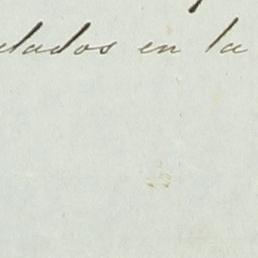 elados en la